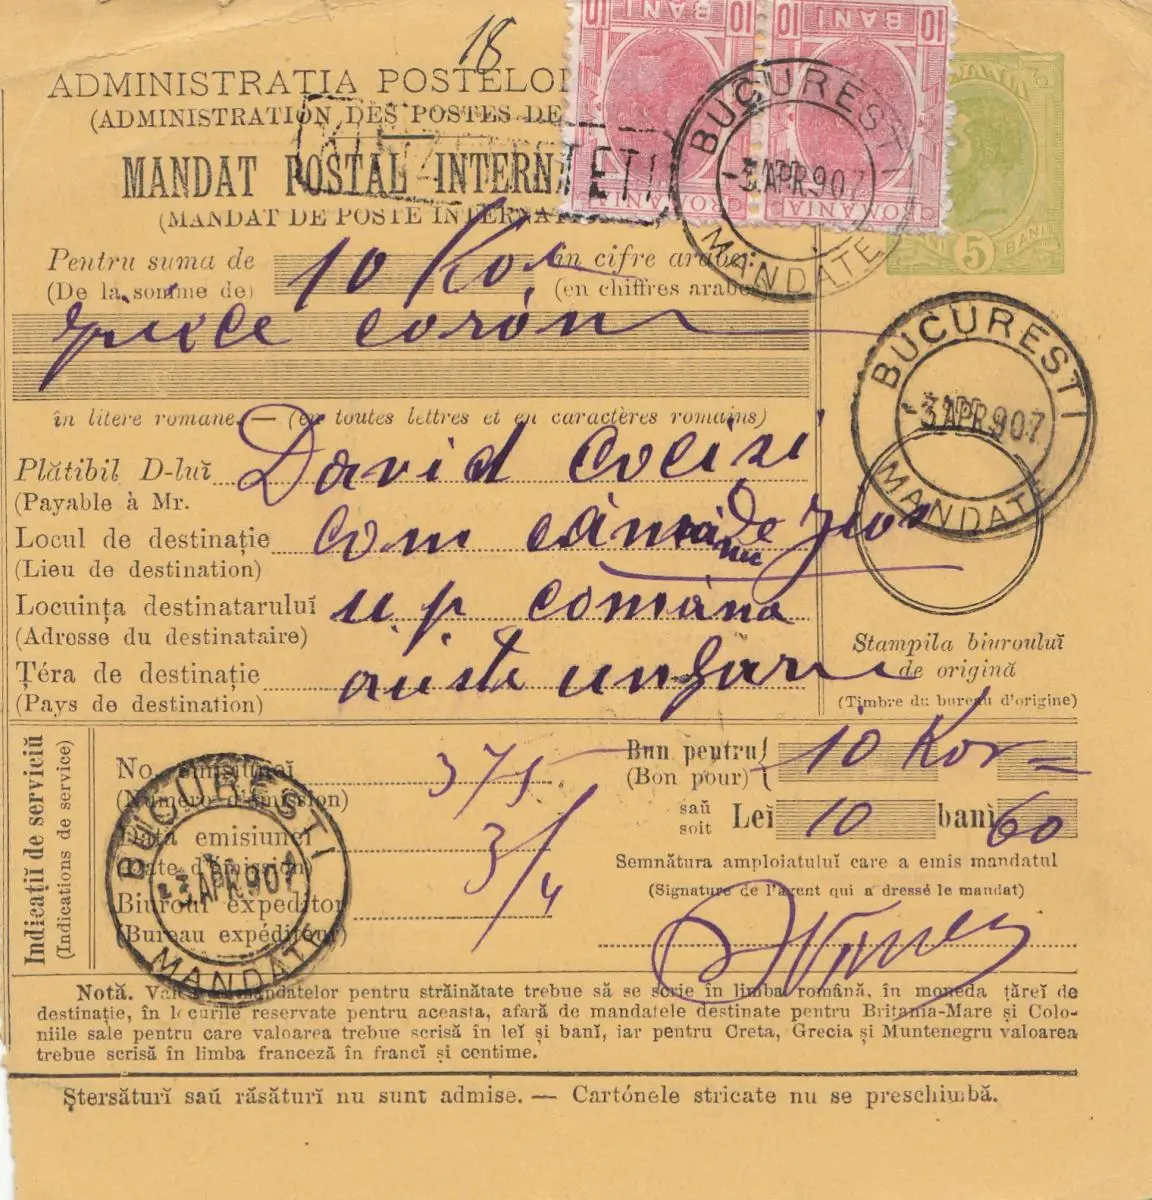 18
10 BANI 10 BANI
ROMANIA ROMANIA
5 BANI
ADMINISTRAȚIA POSTELOR
(ADMINISTRATION DES POSTES DE
MANDAT POSTAL INTERN
(MANDAT DE POSTE INTERNAT
BUCURESTI
-3 APR 907
MANDATE
Pentru suma de 10 Kor în cifre arabe
(De la somme de) (en chiffres arabes)
zece coron
în litere romane. — (en toutes lettres et en caractères romains)
BUCURESTI
-3 APR 907
MANDATE
Plătibil D-luĭ David
(Payable à Mr.
Locul de destinație com
(Lieu de destination)
Locuința destinataruluĭ u.p comána
(Adresse du destinataire)
Țéra de destinație austr ungar
(Pays de destination)
Stampila biurouluĭ
de origină
(Timbre du bureau d'origine)
Indicațiĭ de serviciŭ
(Indications de service)
No. emisiuneĭ 375
(Numéro d'émission)
Data emisiuneĭ 3/4
(Date d'émission)
Biuroul expeditor
(Bureau expéditeur)
BUCURESTI
-3 APR 907
MANDATE
Bun pentru 10 Kor
(Bon pour)
saŭ
soit Leĭ 10 banĭ 60
Semnătura amploiatuluĭ care a emis mandatul
(Signature de l'agent qui a dressé le mandat)
Notă. Val mandatelor pentru străinătate trebue să se scrie în limba română, în moneda țăreĭ de
destinație, în locurile reservate pentru aceasta, afară de mandatele destinate pentru Britania-Mare și Colo-
niile sale pentru care valoarea trebue scrisă în leĭ și banĭ, iar pentru Creta, Grecia și Muntenegru valoarea
trebue scrisă în limba franceză în francĭ și centime.
Ștersăturĭ saŭ răsăturĭ nu sunt admise. — Cartónele stricate nu se preschimbă.